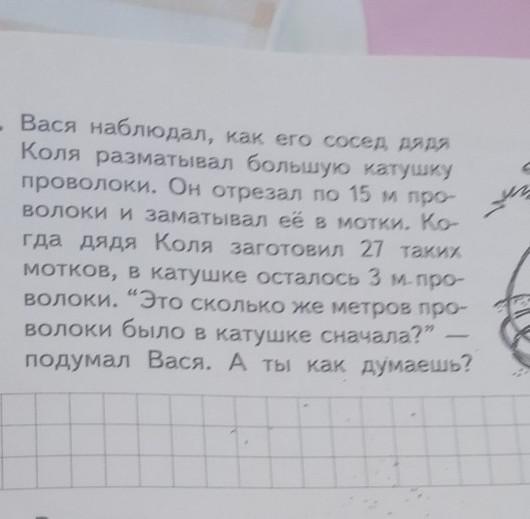 . Вася наблюдал, как его сосед дядя
Коля разматывал большую катушку
проволоки. Он отрезал по 15 м про-
волоки и заматывал её в мотки. Ко-
гда дядя Коля заготовил 27 таких
мотков, в катушке осталось 3 м про-
волоки. “Это сколько же метров про-
волоки было в катушке сначала?” —
подумал Вася. А ты как думаешь?